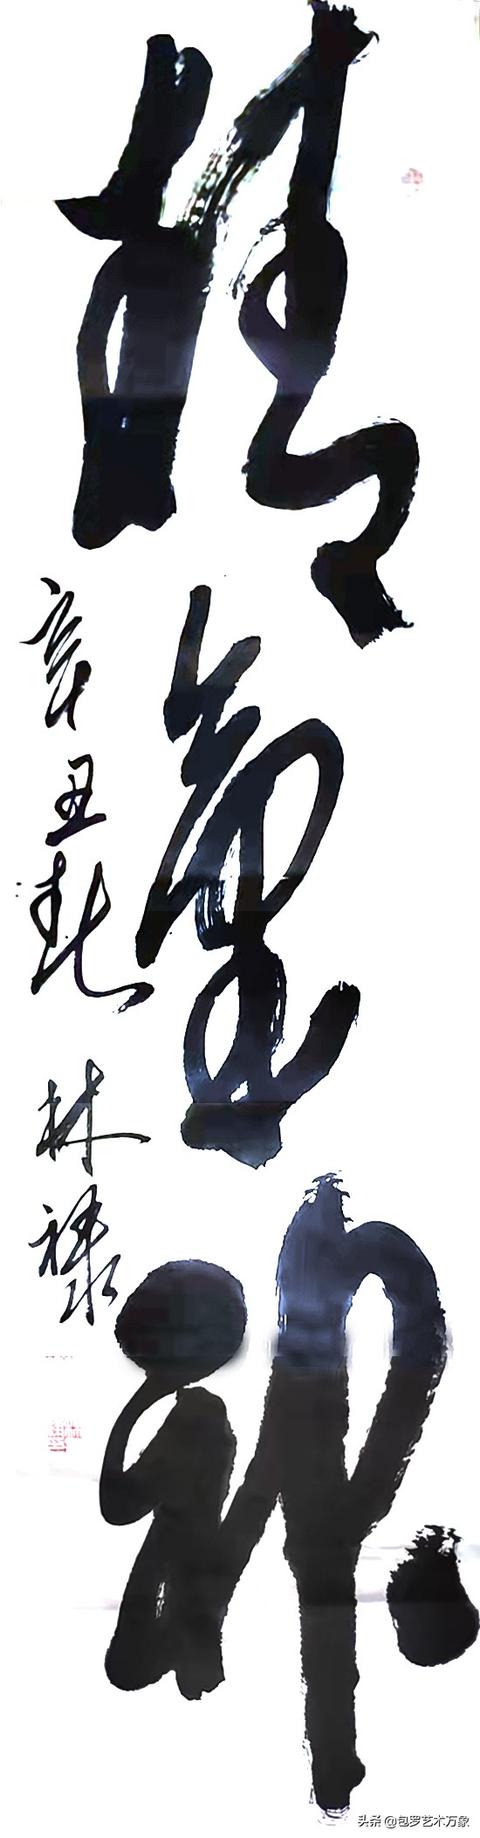 精氣神
辛丑秋 林禄
头条 @包罗艺术万象